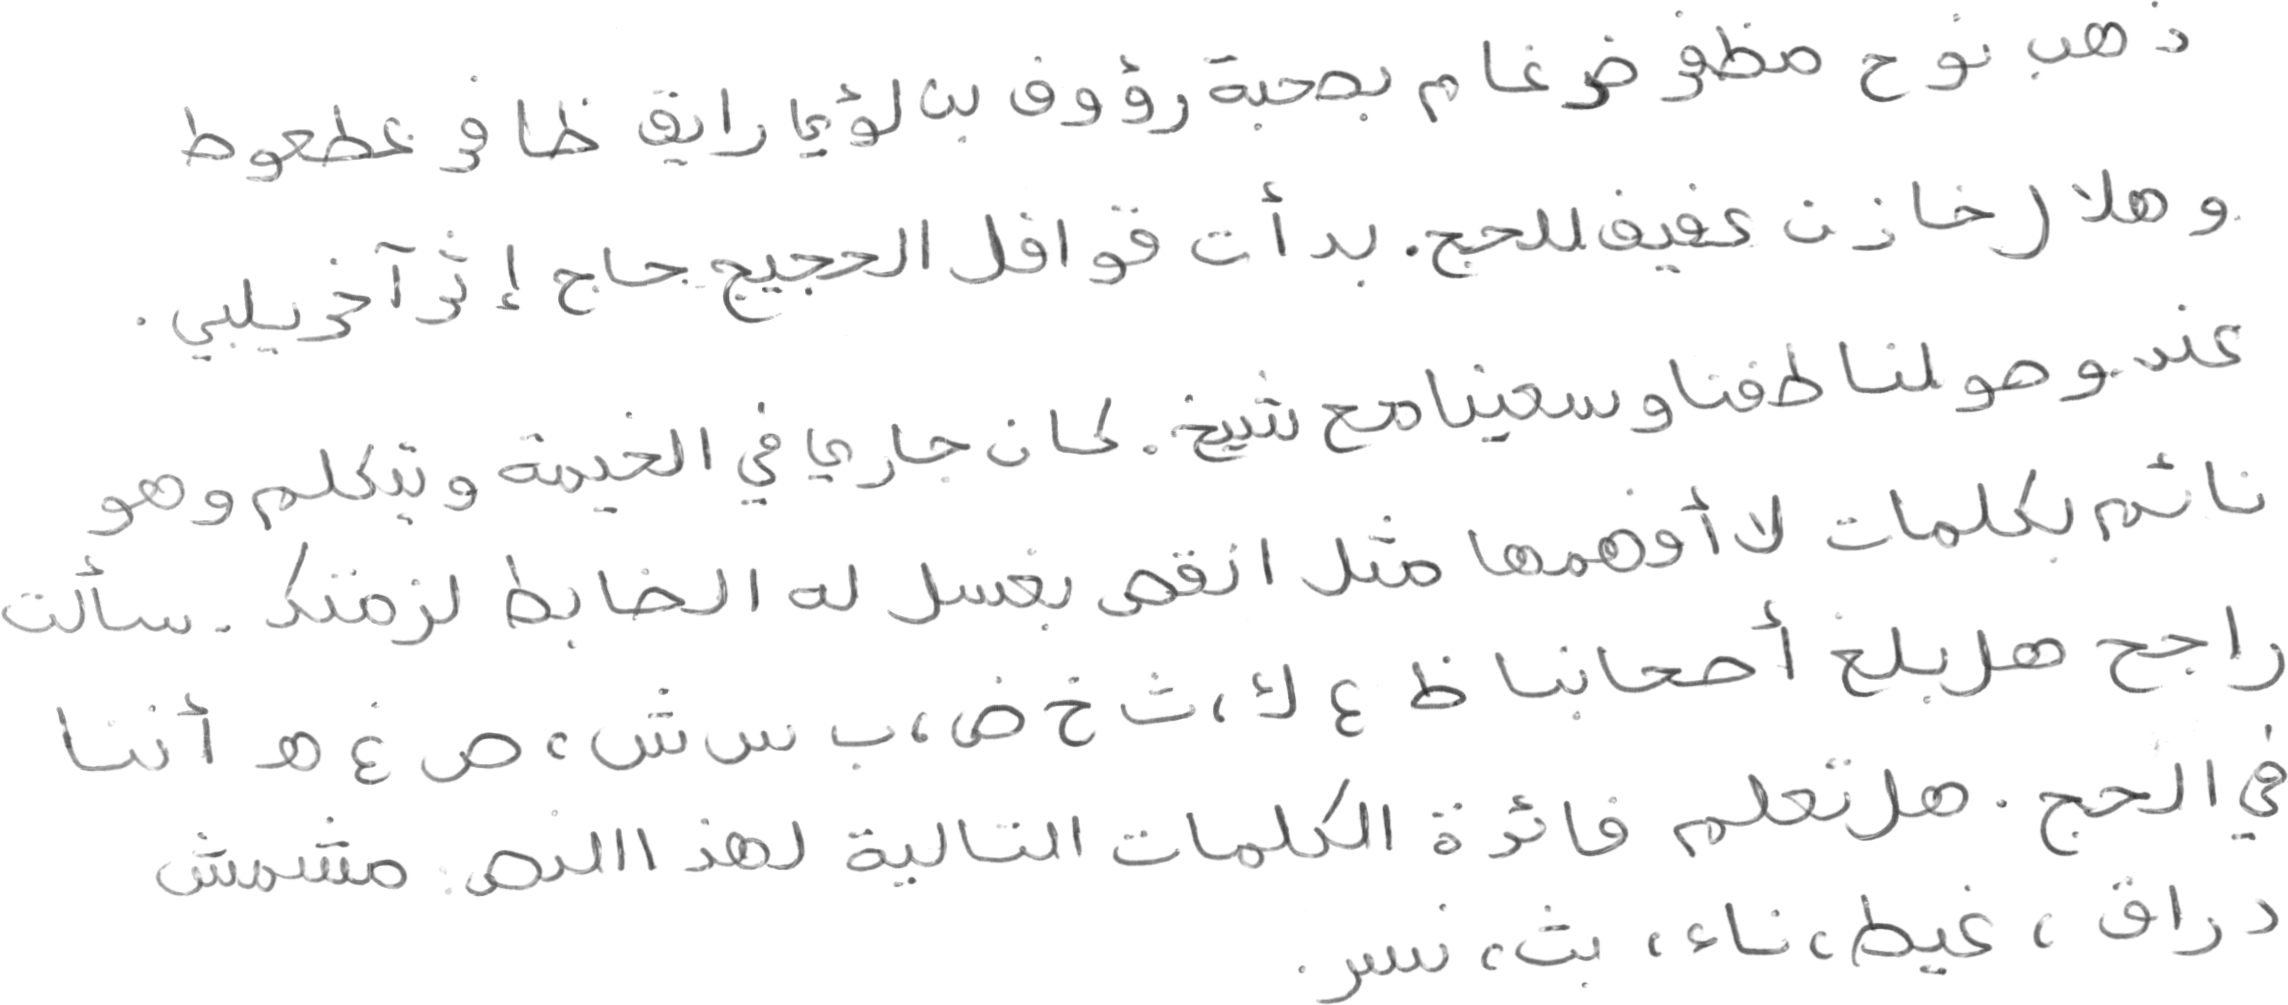 ذهب نوح مظفر ضرغام بصحبة رؤوف بن لؤي رايق ظافر عطعوط
و هلال خازن عفيف للحج. بدأت قوافل الحجيج حاج إثر آخر يلبي.
عند وصولنا طفنا وسعينا مع شيخ. كان جاري في الخيمة ويتكلم وهو
نائم بكلمات لا أفهمها مثل انقص بغسل له الضابط لزمتك. سألت
راجح هل بلغ أصحابنا ظ ع ك، ث خ ض، ب س ش، ص غ هـ أننا
في الحج. هل تعلم فائدة الكلمات التالية لهذا النص مشمش
دراق، غيط، ناء، بث، نسر.